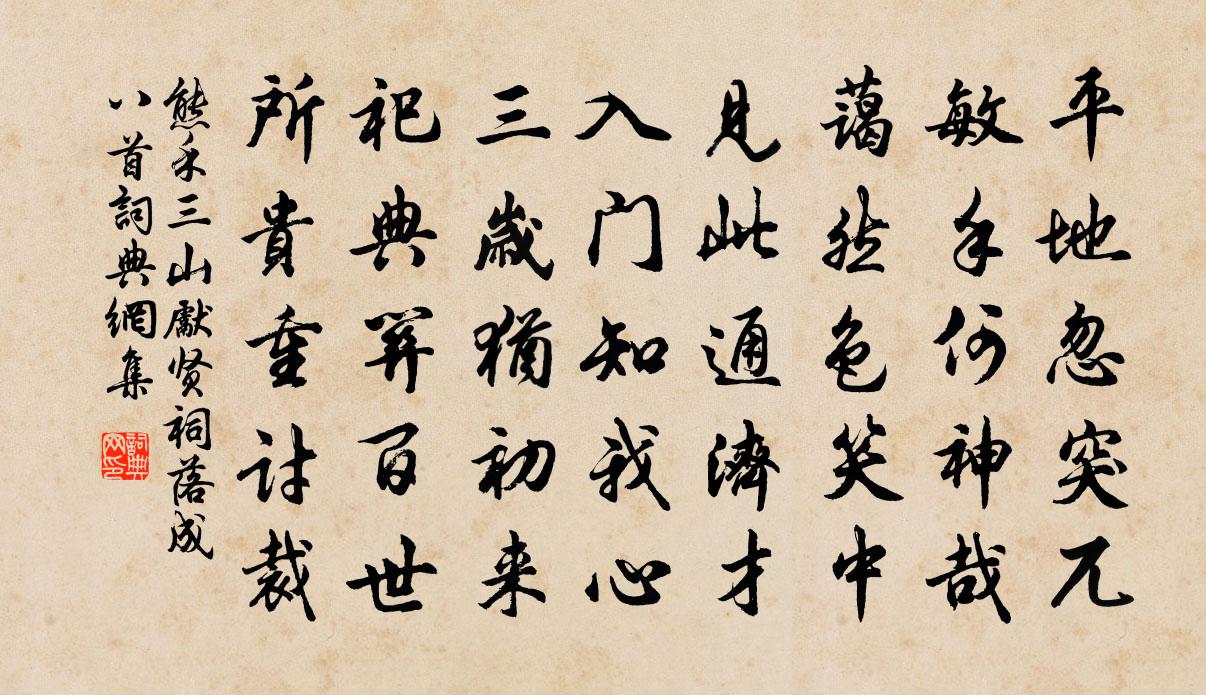 平地忽突兀
敏手何神哉
藹然色笑中
見此通濟才
入门知我心
三歲猶初来
祀典羿百世
所貴重討裁
熊禾三山獻贤祠落成
八首詞典網集
詞典网印